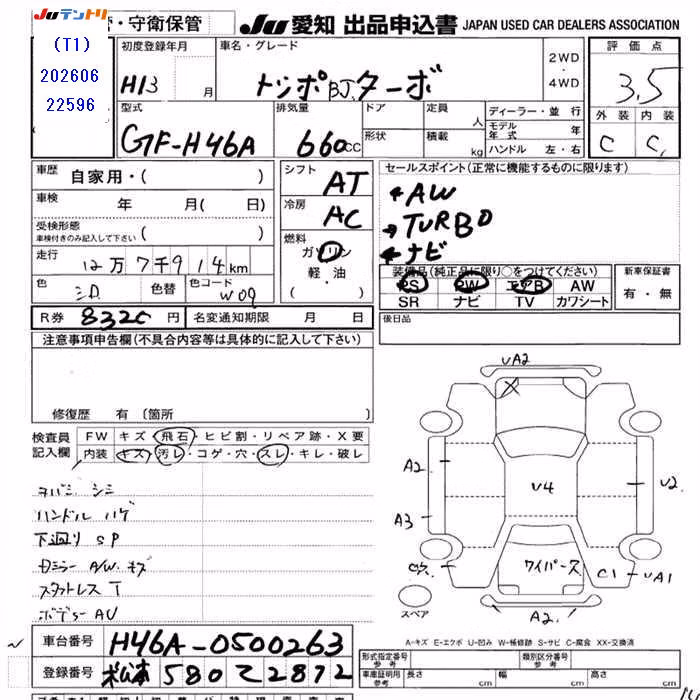 Juテントリ ・守衛保管 Ju 愛知 出品申込書 JAPAN USED CAR DEALERS ASSOCIATION
(T1)
202606
22596
初度登録年月 車名・グレード 2WD・4WD 評価点
H13 月 トッポBJ、ターボ 3.5
型式 排気量 ドア 定員 人 ディーラー・並行 外装 内装
GF-H46A 660CC 形状 積載 kg モデル年式 年 C C
ハンドル 左・右
車歴 自家用・( ) シフト AT セールスポイント(正常に機能するものに限ります)
車検 年 月( 日) 冷房 AC AW
受検形態 車検付きのみ記入して下さい ( ) TURBO
走行 12万7千914km 燃料 ガソリン 軽油 ・( ) ナビ
色 シロ 色替 色コード W09 装備品(純正品に限り○をつけてください) 新車保証書
PS PW エアB AW 有・無
SR ナビ TV カワシート
R券 8320円 名変通知期限 月 日 後日品
注意事項申告欄(不具合内容等は具体的に記入して下さい)
修復歴 有〔箇所
検査員記入欄 FW キズ・飛石・ヒビ割・リペア跡・X要
内装 キズ・汚レ・コゲ・穴・スレ・キレ・破レ
ヨゴミ シミ
ハンドル ハゲ
下廻り SP
A/W キズ
スタットレス T
ボデー AU
UA2
A2
A3
U4
U2
ワイパーズ
C1 UA1
A2
スペア
A-キズ E-エクボ U-凹み W-補修跡 S-サビ C-腐食 XX-交換済
車台番号 H46A-0500263
登録番号 松本 580 て 2872
形式指定番号 参考 類別区分番号 参考
車庫証明用 参考 長さ cm 幅 cm 高さ cm